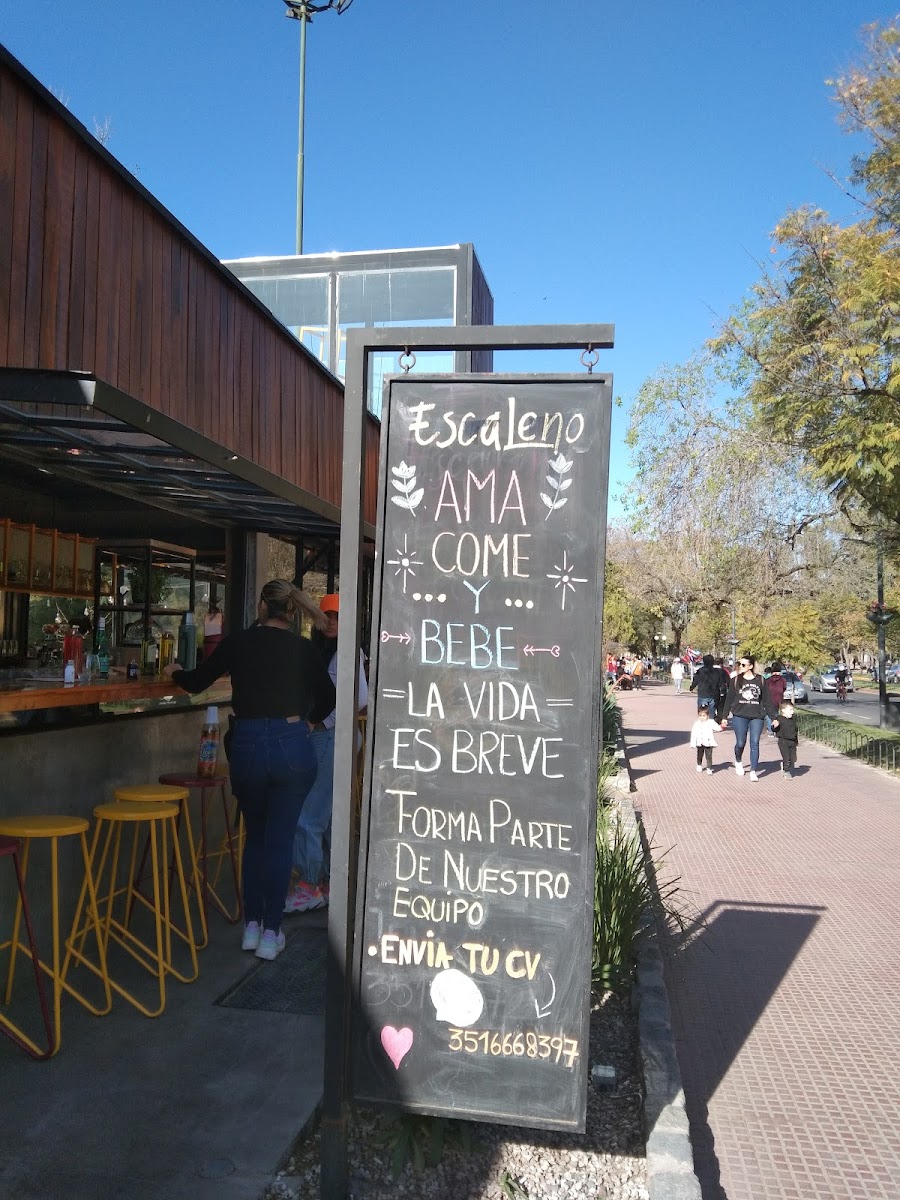 EscaLeno
AMA
COME
... Y ...
BEBE
=LA VIDA=
ES BREVE
Forma Parte
De Nuestro
Equipo
• ENVIA TU CV
3516668397